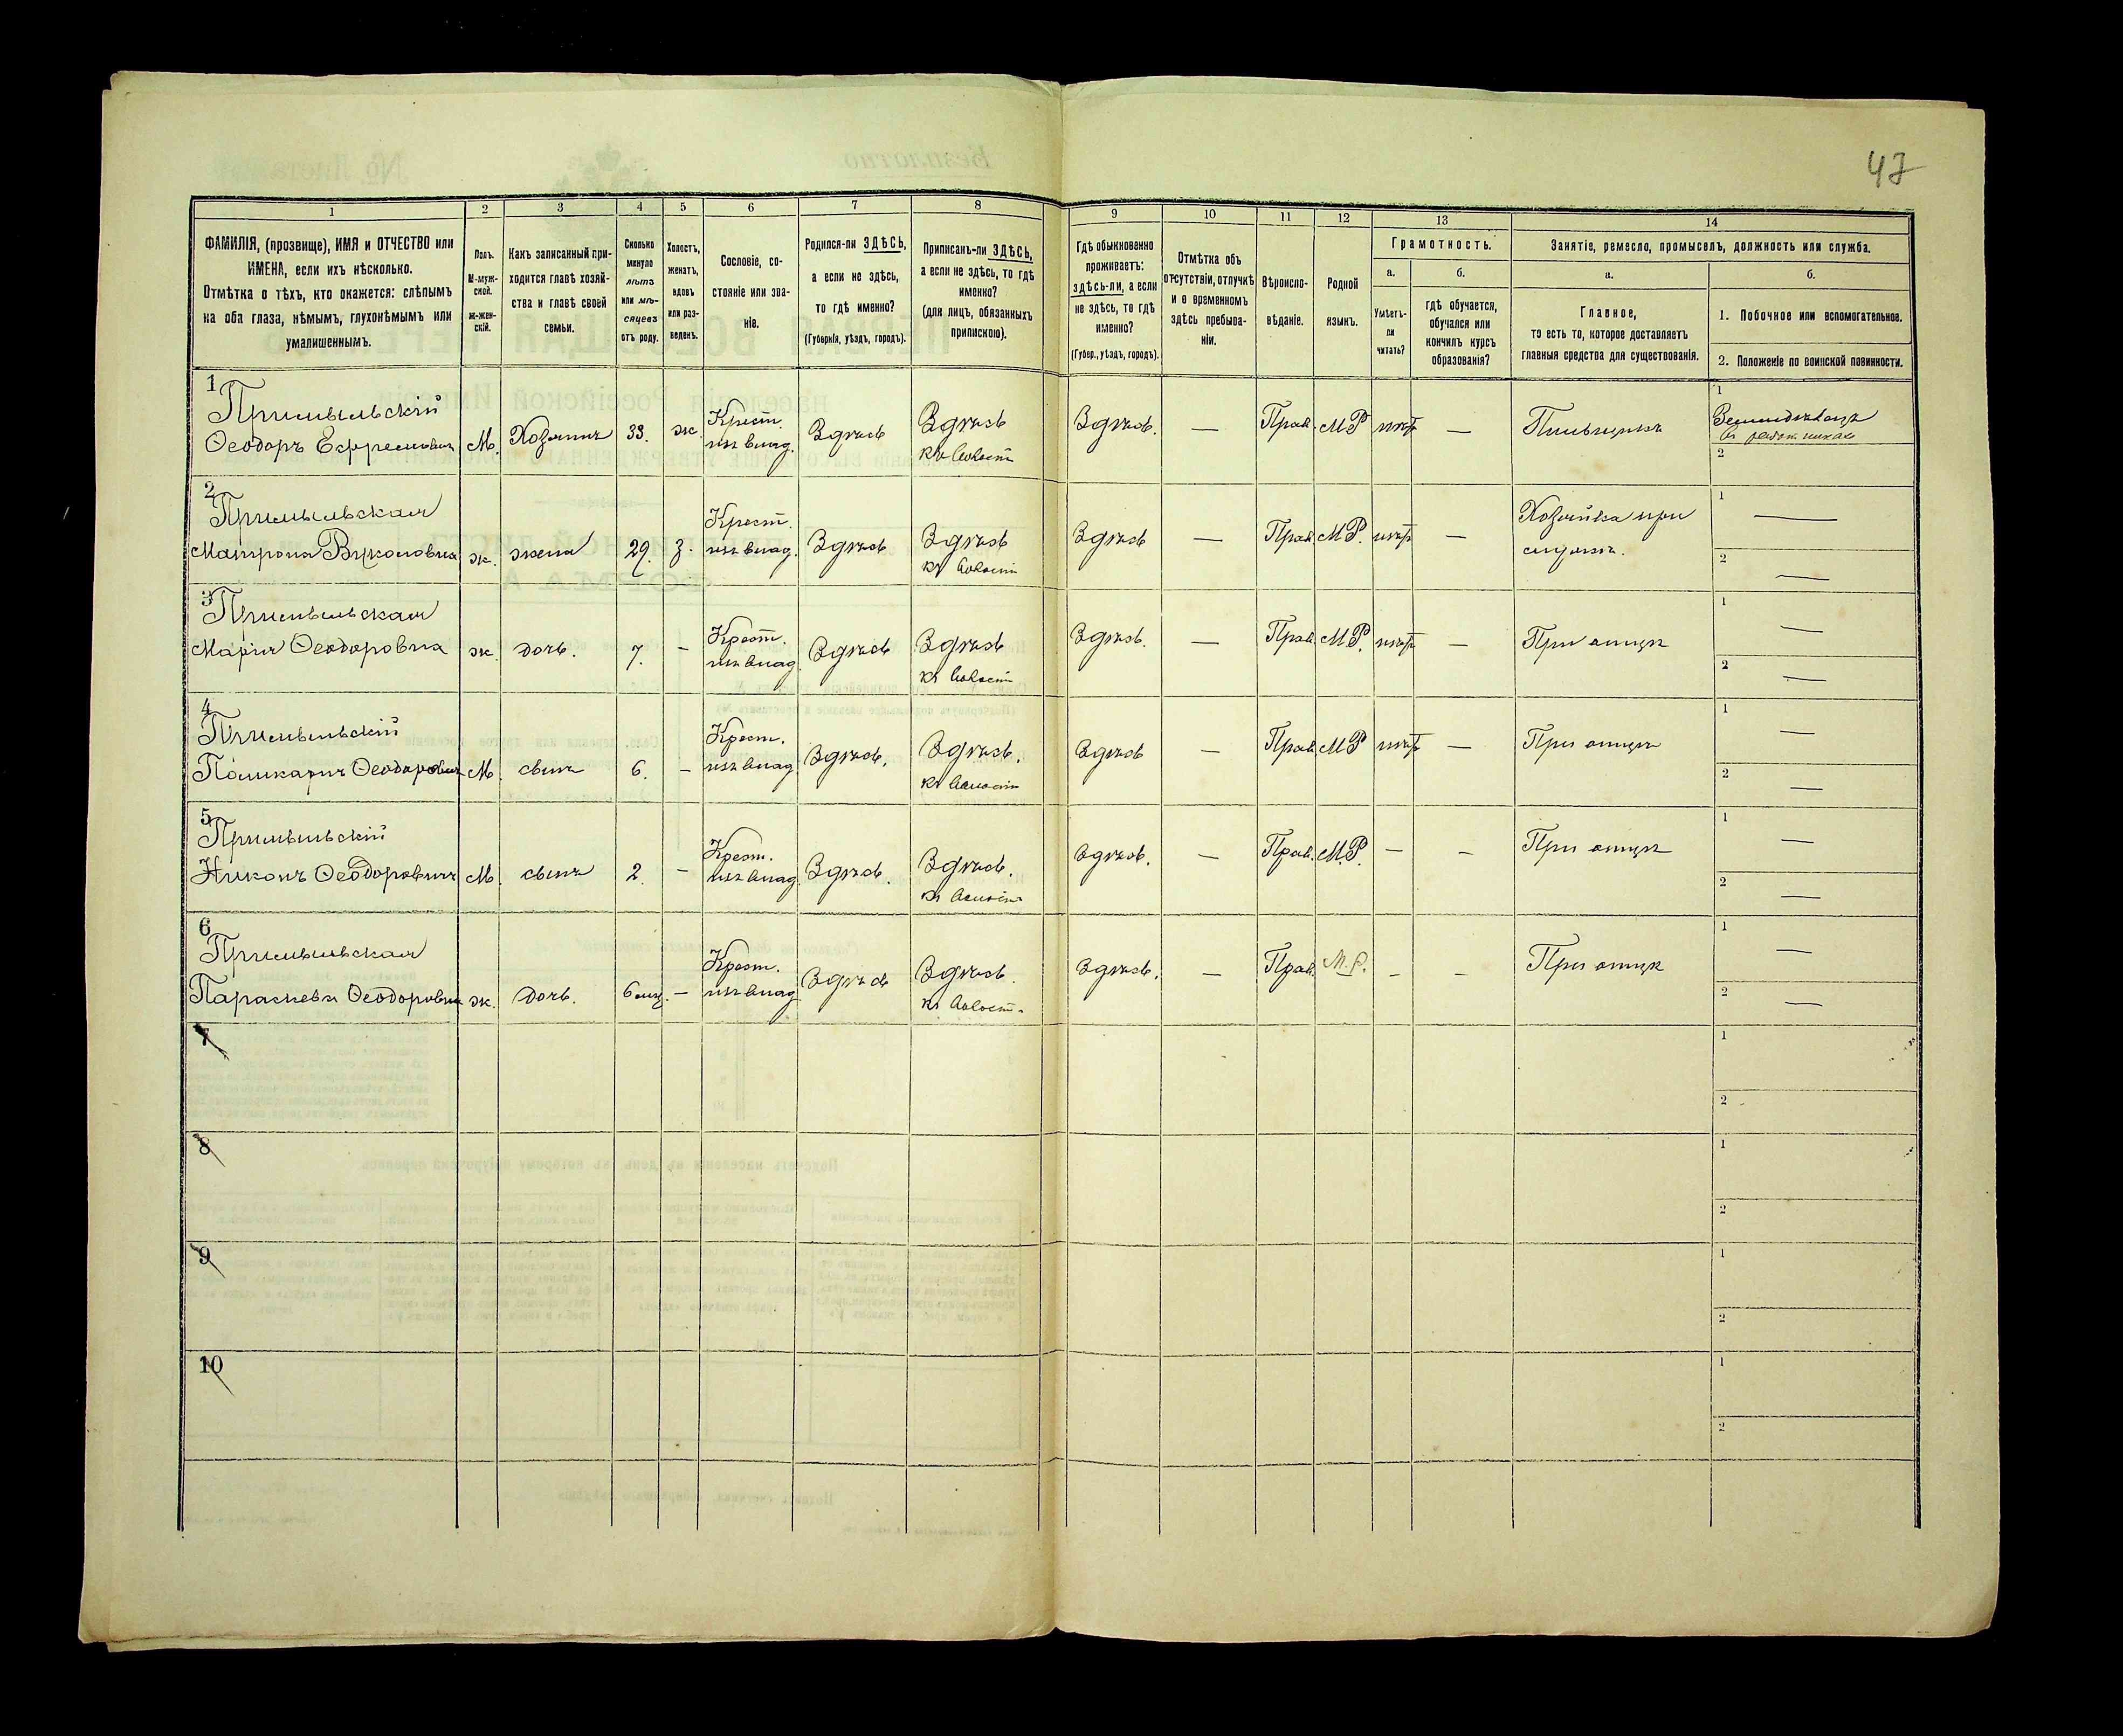 47
1
2
3
4
5
6
7
8
9
10
11
12
13
14
ФАМИЛІЯ, (прозвище), ИМЯ и ОТЧЕСТВО или
ИМЕНА, если ихъ нѣсколько.
Отмѣтка о тѣхъ, кто окажется: слѣпымъ
на оба глаза, нѣмымъ, глухонѣмымъ или
умалишеннымъ.
Полъ.
М-муж-
ской.
ж-жен-
скій.
Какъ записанный при-
ходится главѣ хозяй-
ства и главѣ своей
семьи.
Сколько
минуло
лѣтъ
или мѣ-
сяцевъ
отъ роду.
Холостъ,
женатъ,
вдовъ
или раз-
веденъ.
Сословіе, со-
стояніе или зва-
ніе.
Родился-ли ЗДѢСЬ,
а если не здѣсь,
то гдѣ именно?
(Губернія, уѣздъ, городъ).
Приписанъ-ли ЗДѢСЬ,
а если не здѣсь, то гдѣ
именно?
(для лицъ, обязанныхъ
припискою).
Гдѣ обыкновенно
проживаетъ:
здѣсь-ли, а если
не здѣсь, то гдѣ
именно?
(Губер., уѣздъ, городъ).
Отмѣтка объ
отсутствіи, отлучкѣ
и о временномъ
здѣсь пребыва-
ніи.
Вѣроиспо-
вѣданіе.
Родной
языкъ.
Грамотность.
а.
Умѣетъ-
ли
читать?
б.
гдѣ обучается,
обучался или
кончилъ курсъ
образованія?
Занятіе, ремесло, промыселъ, должность или служба.
а.
Главное,
то есть то, которое доставляетъ
главныя средства для существованія.
б.
1. Побочное или вспомогательное.
2. Положеніе по воинской повинности.
1
Ѳеодоръ Ефремовъ
М.
Хозяинъ
33.
ж.
Крест.
изъ влад.
Здѣсь
Здѣсь
къ волости
Здѣсь.
—
Прав.
МР
нѣтъ
—
Пильщикъ
1
2
2
Матрона
ж.
жена
29.
З.
Крест.
изъ влад.
Здѣсь
Здѣсь
къ волости
Здѣсь
—
Прав.
МР.
нѣтъ
—
Хозяйка при
1
—
2
—
3
Марія Ѳеодоровна
ж.
дочь.
7.
—
Крест.
изъ влад.
Здѣсь
Здѣсь
къ волости
Здѣсь.
—
Прав.
МР.
нѣтъ
—
При отцѣ
1
—
2
—
4
Ѳеодоровъ
М.
сынъ
6.
—
Крест.
изъ влад.
Здѣсь.
Здѣсь.
къ волости
Здѣсь
—
Прав.
МР
нѣтъ
—
При отцѣ
1
—
2
—
5
Никонъ Ѳеодоровичъ
М.
сынъ
2.
—
Крест.
изъ влад.
Здѣсь.
Здѣсь.
къ волости
Здѣсь.
—
Прав.
М.Р.
—
—
При отцѣ
1
—
2
—
6
Параскева Ѳеодоровна
ж.
дочь.
6 мѣс.
—
Крест.
изъ влад.
Здѣсь
Здѣсь.
къ волост.
Здѣсь.
—
Прав.
М.Р.
—
—
При отцѣ
1
—
2
—
7
1
2
8
1
2
9
1
2
10
1
2